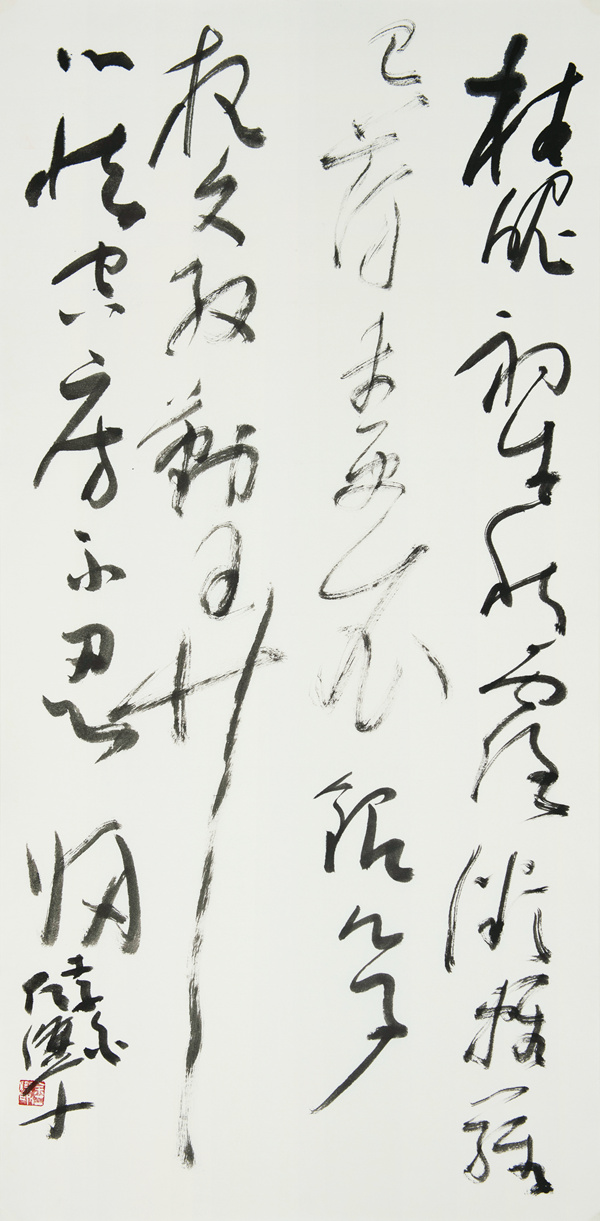 桂魄初生秋露微輕羅
已薄未更衣銀箏
夜久殷勤弄
心怯空房不忍歸